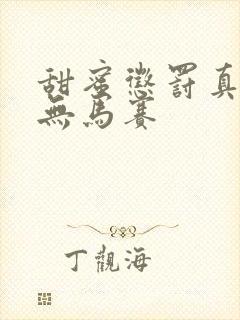 甜蜜懲罰真
無馬賽
丁觀海